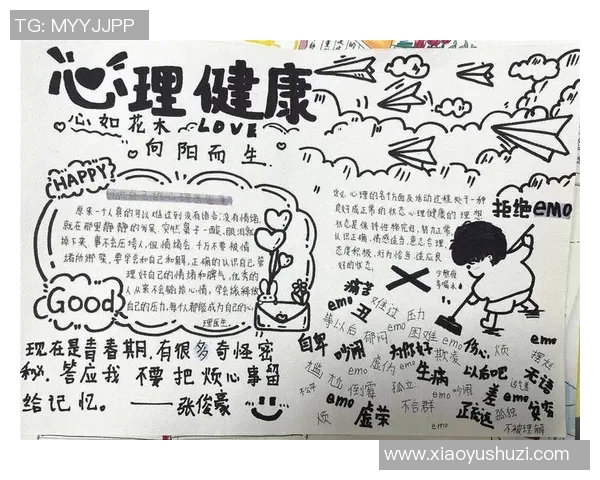 TG: MYYJJPP
心理健康
心如花木 LOVE
向阳而生
HAPPY
原来一个人真的可以难过到没有语言，没有情绪，
就在那里静静的
突然鼻子一酸，眼泪就
掉下来，
但情绪千万不要被情
绪所绑架，要学会和自己和解，正确的认识自己，管
理好自己的情绪和脾气，优秀的
人从来不会输给心情，学会缓解放
自己的压力，每个人都能成为自己的心
理医生。
Good
现在是青春期，有很多奇怪密
秘，答应我 不要把烦心事留
给记忆。——张俊豪
心理的各个方面及活动过程处于一种
良好或正常的状态心理健康的理想
状态是保持性格完好、智力正常、
认识正确、情感适当、意志合理、
态度积极、行为恰当、适应良
好的状态。
拒绝emo
痛苦
emo
难过
压力
丑
等以后
郁闷
emo
困难
emo
自卑
吵闹
为你好
欺凌
伤心
烦
emo
摆烂
尴尬
倒霉
emo
虚伪
emo
生病
以后吧
无语
孤立
emo
吵闹
差
emo
贫穷
烦
emo
虚荣
不合群
emo
孤独
不被理解
www.xiaoyushuzi.com